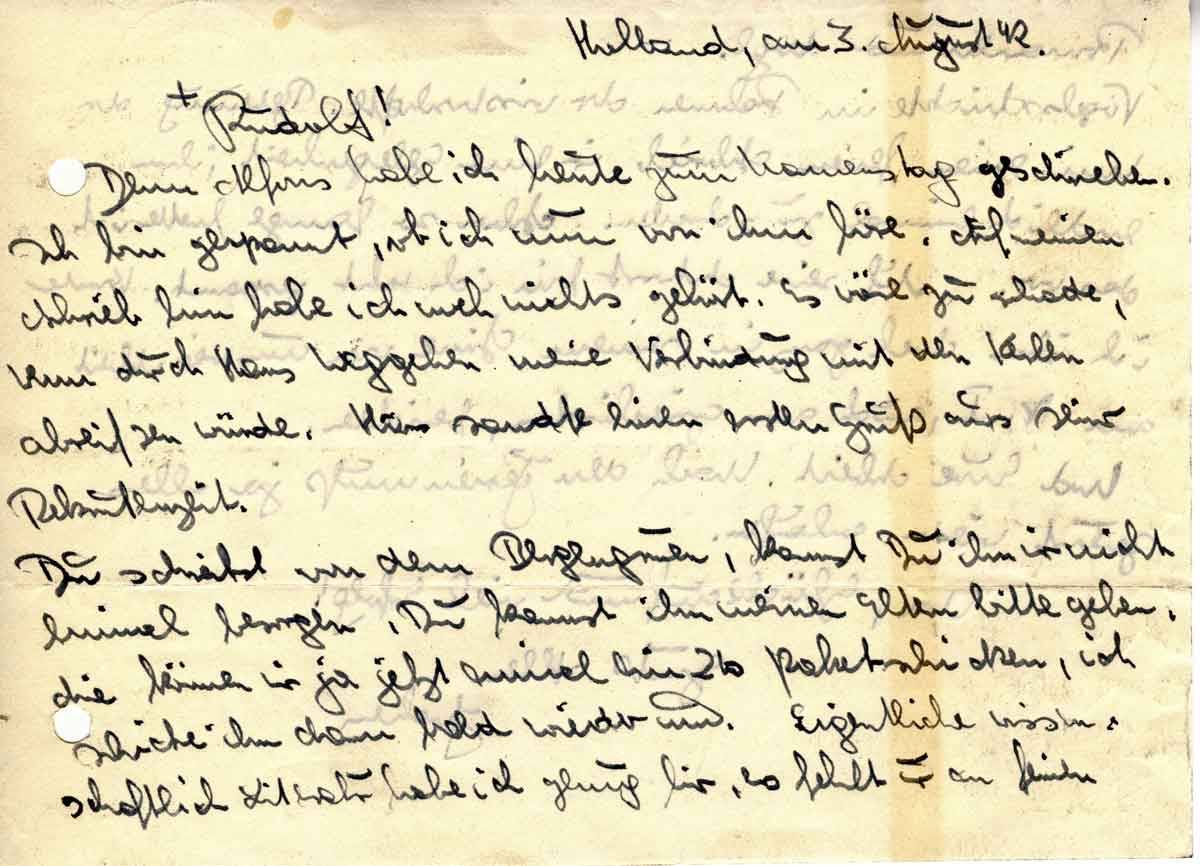 Holland, am 3. August 42.
+ Rudolf!
Dem Alfons habe ich heute zum Namenstag geschrieben.
Ich bin gespannt, ob ich nun von ihm höre. Auf meinen
Schrieb hin habe ich noch nichts gehört. Es wäre zu schade,
wenn durch Hans Weggehen meine Verbindung mit den Kerlen
abreißen würde. Hans sandte einen ersten Gruß aus seiner
Rekrutenzeit.
Du schreibst von dem, kannst Du ihn mir nicht
einmal besorgen, Du kannst ihn meinen Eltern bitte geben,
die können mir ja jetzt einmal ein Paket schicken, ich
schicke ihn dann bald wieder um. Eigentliche wissen-
schaftlich Literatur habe ich genug hier, es fehlt mir an